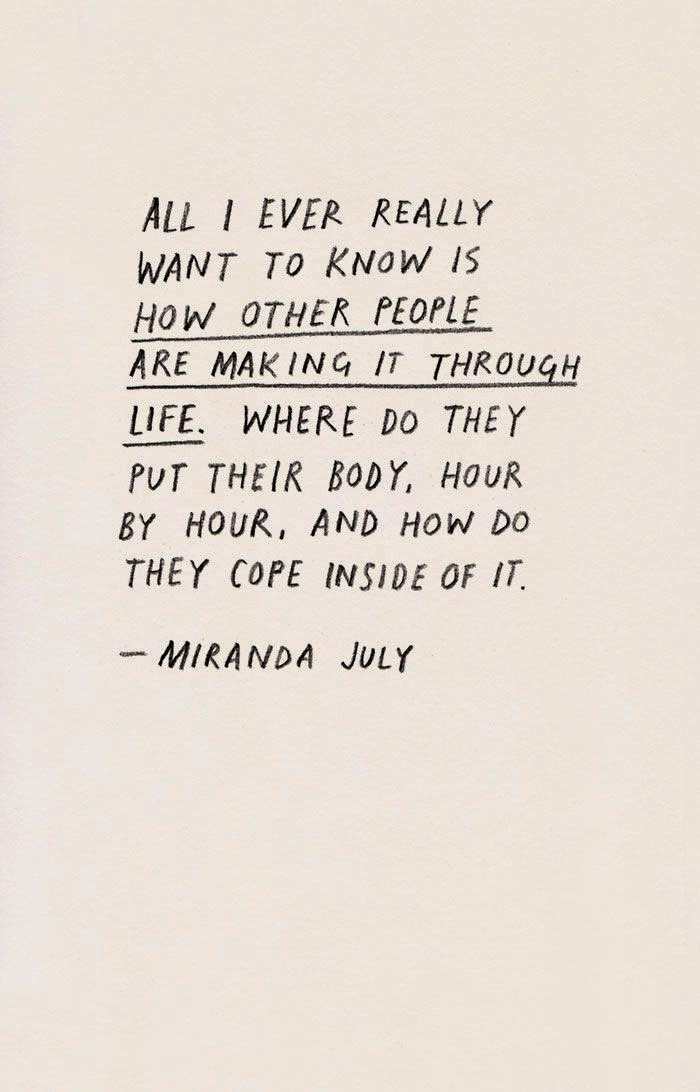 ALL I EVER REALLY
WANT TO KNOW IS
HOW OTHER PEOPLE
ARE MAKING IT THROUGH
LIFE. WHERE DO THEY
PUT THEIR BODY, HOUR
BY HOUR, AND HOW DO
THEY COPE INSIDE OF IT.
— MIRANDA JULY